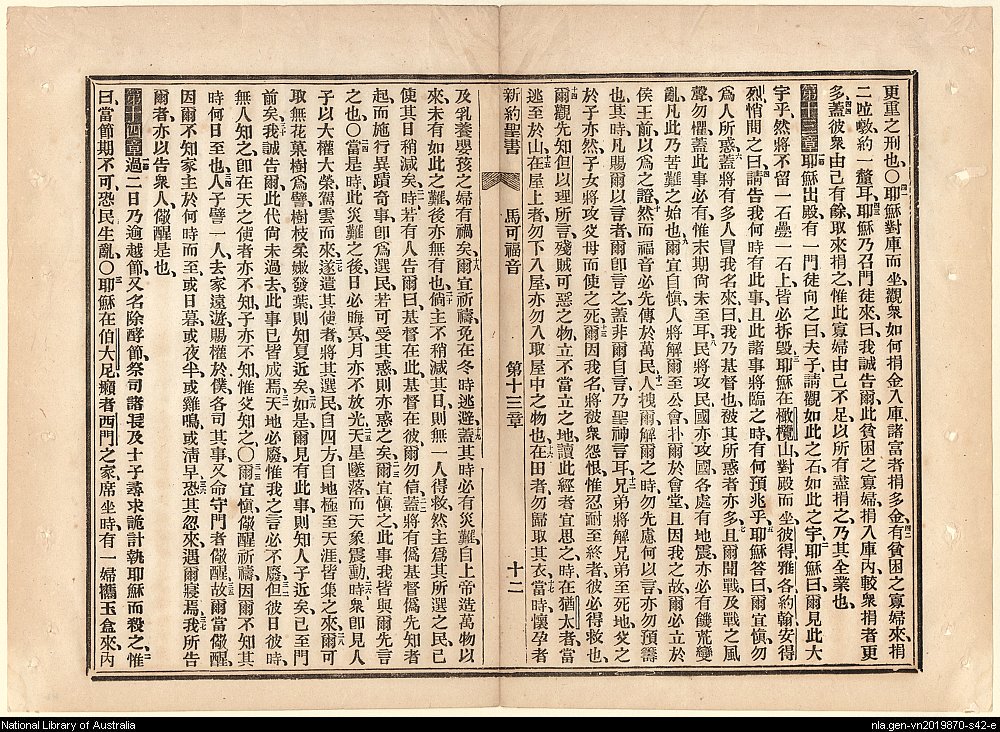 更重之刑也、〇耶穌對庫而坐、觀衆如何捐金入庫、諸富者捐多金、有貧困之寡婦來、捐
二呫囇、約一釐耳、耶穌乃召門徒來曰、我誠告爾、此貧困之寡婦、捐入庫內、較衆捐者更
多、蓋彼衆由己有餘、取來捐之、惟此寡婦、由己不足、以所有盡捐之、乃其全業也、
第十三章 耶穌出殿、有一門徒向之曰、夫子請觀、如此之石、如此之宇、耶穌曰、爾見此大
宇乎、然將不留一石疊一石上、皆必拆毀、耶穌在橄欖山、對殿而坐、彼得雅各約翰安得
烈悄問之曰、請告我、何時有此事、且此諸事將臨之時、有何預兆乎、耶穌答曰、爾宜慎、勿
爲人所惑、蓋將有多人冒我名來、曰、我乃基督也、被其所惑者亦多、且爾聞戰、及戰之風
聲、勿懼、蓋此事必有、惟末期尚未至耳、民將攻民、國亦攻國、各處有地震、亦必有饑荒變
亂、凡此乃苦難之始也、爾宜自慎、人將解爾至公會、扑爾於會堂、且因我之故、爾必立於
侯王前、以爲之證、然而福音必先傳於萬民、人拽爾解爾之時、勿先慮何以言、亦勿預籌
也、其時凡賜爾以言者、爾卽言之、蓋非爾自言、乃聖神言耳、兄弟將解兄弟至死地、父之
於子亦然、子女將攻父母而使之死、爾因我名將被衆怨恨、惟忍耐至終者、彼必得救也、
爾觀先知但以理所言、殘賊可惡之物、立不當立之地、讀此經者宜思之、時在猶太者、當
逃至於山、在屋上者、勿下入屋、亦勿入取屋中之物也、在田者、勿歸取其衣、當時懷孕者
新約聖書 馬可福音 第十三章 十二
及乳養嬰孩之婦有禍矣、爾宜祈禱、免在冬時逃避、蓋其時必有災難、自上帝造萬物以
來、未有如此之難、後亦無有也、倘主不稍減其日、則無一人得救、然主爲其所選之民、已
使其日稍減矣、時若有人告爾曰、基督在此、基督在彼、爾勿信、蓋將有僞基督僞先知者
起、而施行異蹟奇事、卽爲選民、若可受其惑、則亦惑之矣、爾宜慎之、此事我皆與爾先言
之也、〇當是時、此災難之後、日必晦冥、月亦不放光、天星墜落、而天象震動、時衆卽見人
子以大權大榮、駕雲而來、遂遣其使者、將其選民、自四方、自地極至天涯、皆集之來、爾可
取無花菓樹爲譬、樹枝柔嫩發葉、則知夏近矣、如是爾見有此事、則知人子近矣、已至門
前矣、我誠告爾、此代尚未過去、此事已皆成焉、天地必廢、惟我之言必不廢、但彼日彼時、
無人知之、卽在天之使者亦不知、子亦不知、惟父知之、〇爾宜慎、儆醒祈禱、因爾不知其
時何日至也、人子譬一人、去家遠遊、賜權於僕、各司其事、又命守門者儆醒、故爾當儆醒、
因爾不知家主於何時而至、或日暮、或夜半、或雞鳴、或清早、恐其忽來、遇爾寢焉、我所告
爾者、亦以告衆人、儆醒是也、
第十四章 過二日、乃逾越節、又名除酵節、祭司諸長及士子、尋求詭計執耶穌而殺之、惟
曰、當節期不可、恐民生亂、〇耶穌在伯大尼、癩者西門之家席坐時、有一婦攜玉盒來、內
National Library of Australia
nla.gen-vn2019870-s42-e